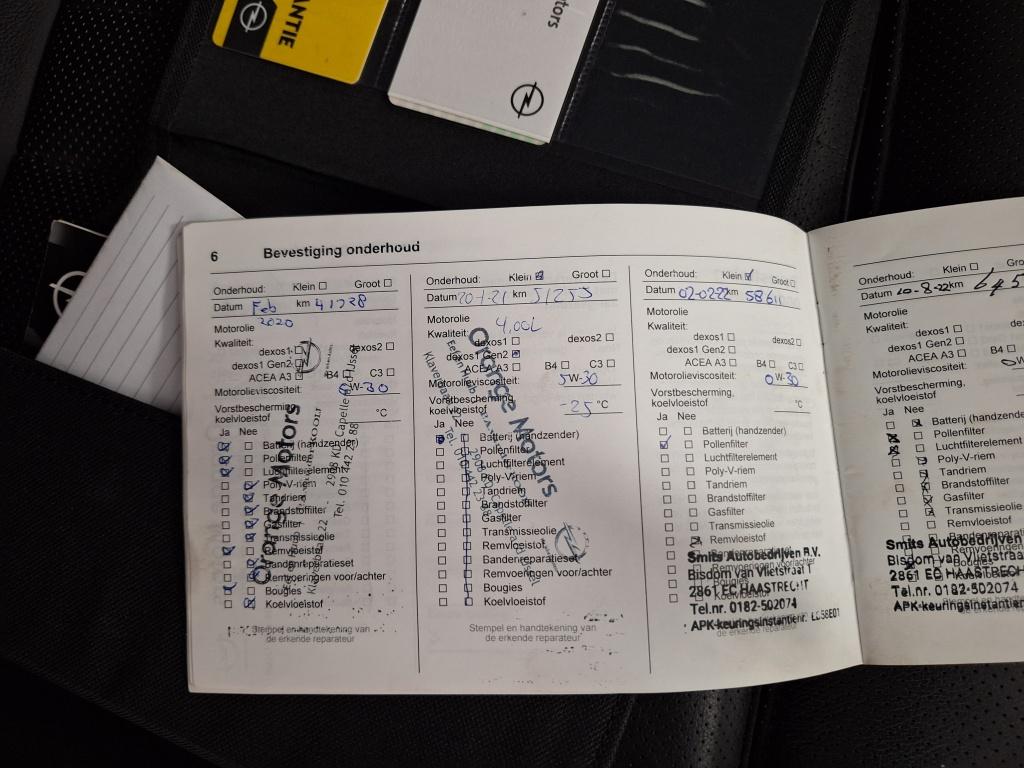 ANTIE
tors
6 Bevestiging onderhoud
Onderhoud: Klein Groot
Datum Feb km 41728
2020
Motorolie
Kwaliteit:
dexos1 dexos2
dexos1 Gen2
ACEA A3 B4 C3
Motorolieviscositeit: 0W-30
Vorstbescherming,
koelvloeistof °C
Ja Nee
Batterij (handzender)
Pollenfilter
Luchtfilterelement
Poly-V-riem
Tandriem
Brandstoffilter
Gasfilter
Transmissieolie
Remvloeistof
Bandenreparatieset
Remvoeringen voor/achter
Bougies
Koelvloeistof
Orange Motors
Stempel en handtekening van
de erkende reparateur
Onderhoud: Klein Groot
Datum 20-1-21 km 51255
Motorolie 4,00L
Kwaliteit:
dexos1 dexos2
dexos1 Gen2
ACEA A3 B4 C3
Motorolieviscositeit: 5W-30
Vorstbescherming,
koelvloeistof -25 °C
Ja Nee
Batterij (handzender)
Pollenfilter
Luchtfilterelement
Poly-V-riem
Tandriem
Brandstoffilter
Gasfilter
Transmissieolie
Remvloeistof
Bandenreparatieset
Remvoeringen voor/achter
Bougies
Koelvloeistof
Orange Motors
Stempel en handtekening van
de erkende reparateur
Onderhoud: Klein Groot
Datum 02-02-22 km 58611
Motorolie
Kwaliteit:
dexos1 dexos2
dexos1 Gen2
ACEA A3 B4 C3
Motorolieviscositeit: 0W-30
Vorstbescherming,
koelvloeistof °C
Ja Nee
Batterij (handzender)
Pollenfilter
Luchtfilterelement
Poly-V-riem
Tandriem
Brandstoffilter
Gasfilter
Transmissieolie
Remvloeistof
Smits Autobedrijven B.V.
Bisdom van Vlietstraat 1
2861 EC HAASTRECHT
Tel.nr. 0182-502074
APK-keuringsinstantienr.
de erkende reparateur
Onderhoud: Klein
Datum 10-8-22 km 645
Motorolie
Kwaliteit:
dexos1
dexos1 Gen2
ACEA A3 B4
Motorolieviscositeit:
Vorstbescherming,
koelvloeistof
Ja Nee
Batterij (handzender
Pollenfilter
Luchtfilterelement
Poly-V-riem
Tandriem
Brandstoffilter
Gasfilter
Transmissieolie
Remvloeistof
Smits Autobedrijven
Bisdom van Vlietstraa
2861 EC HAASTRECH
Tel.nr. 0182-502074
APK-keuringsinstantier